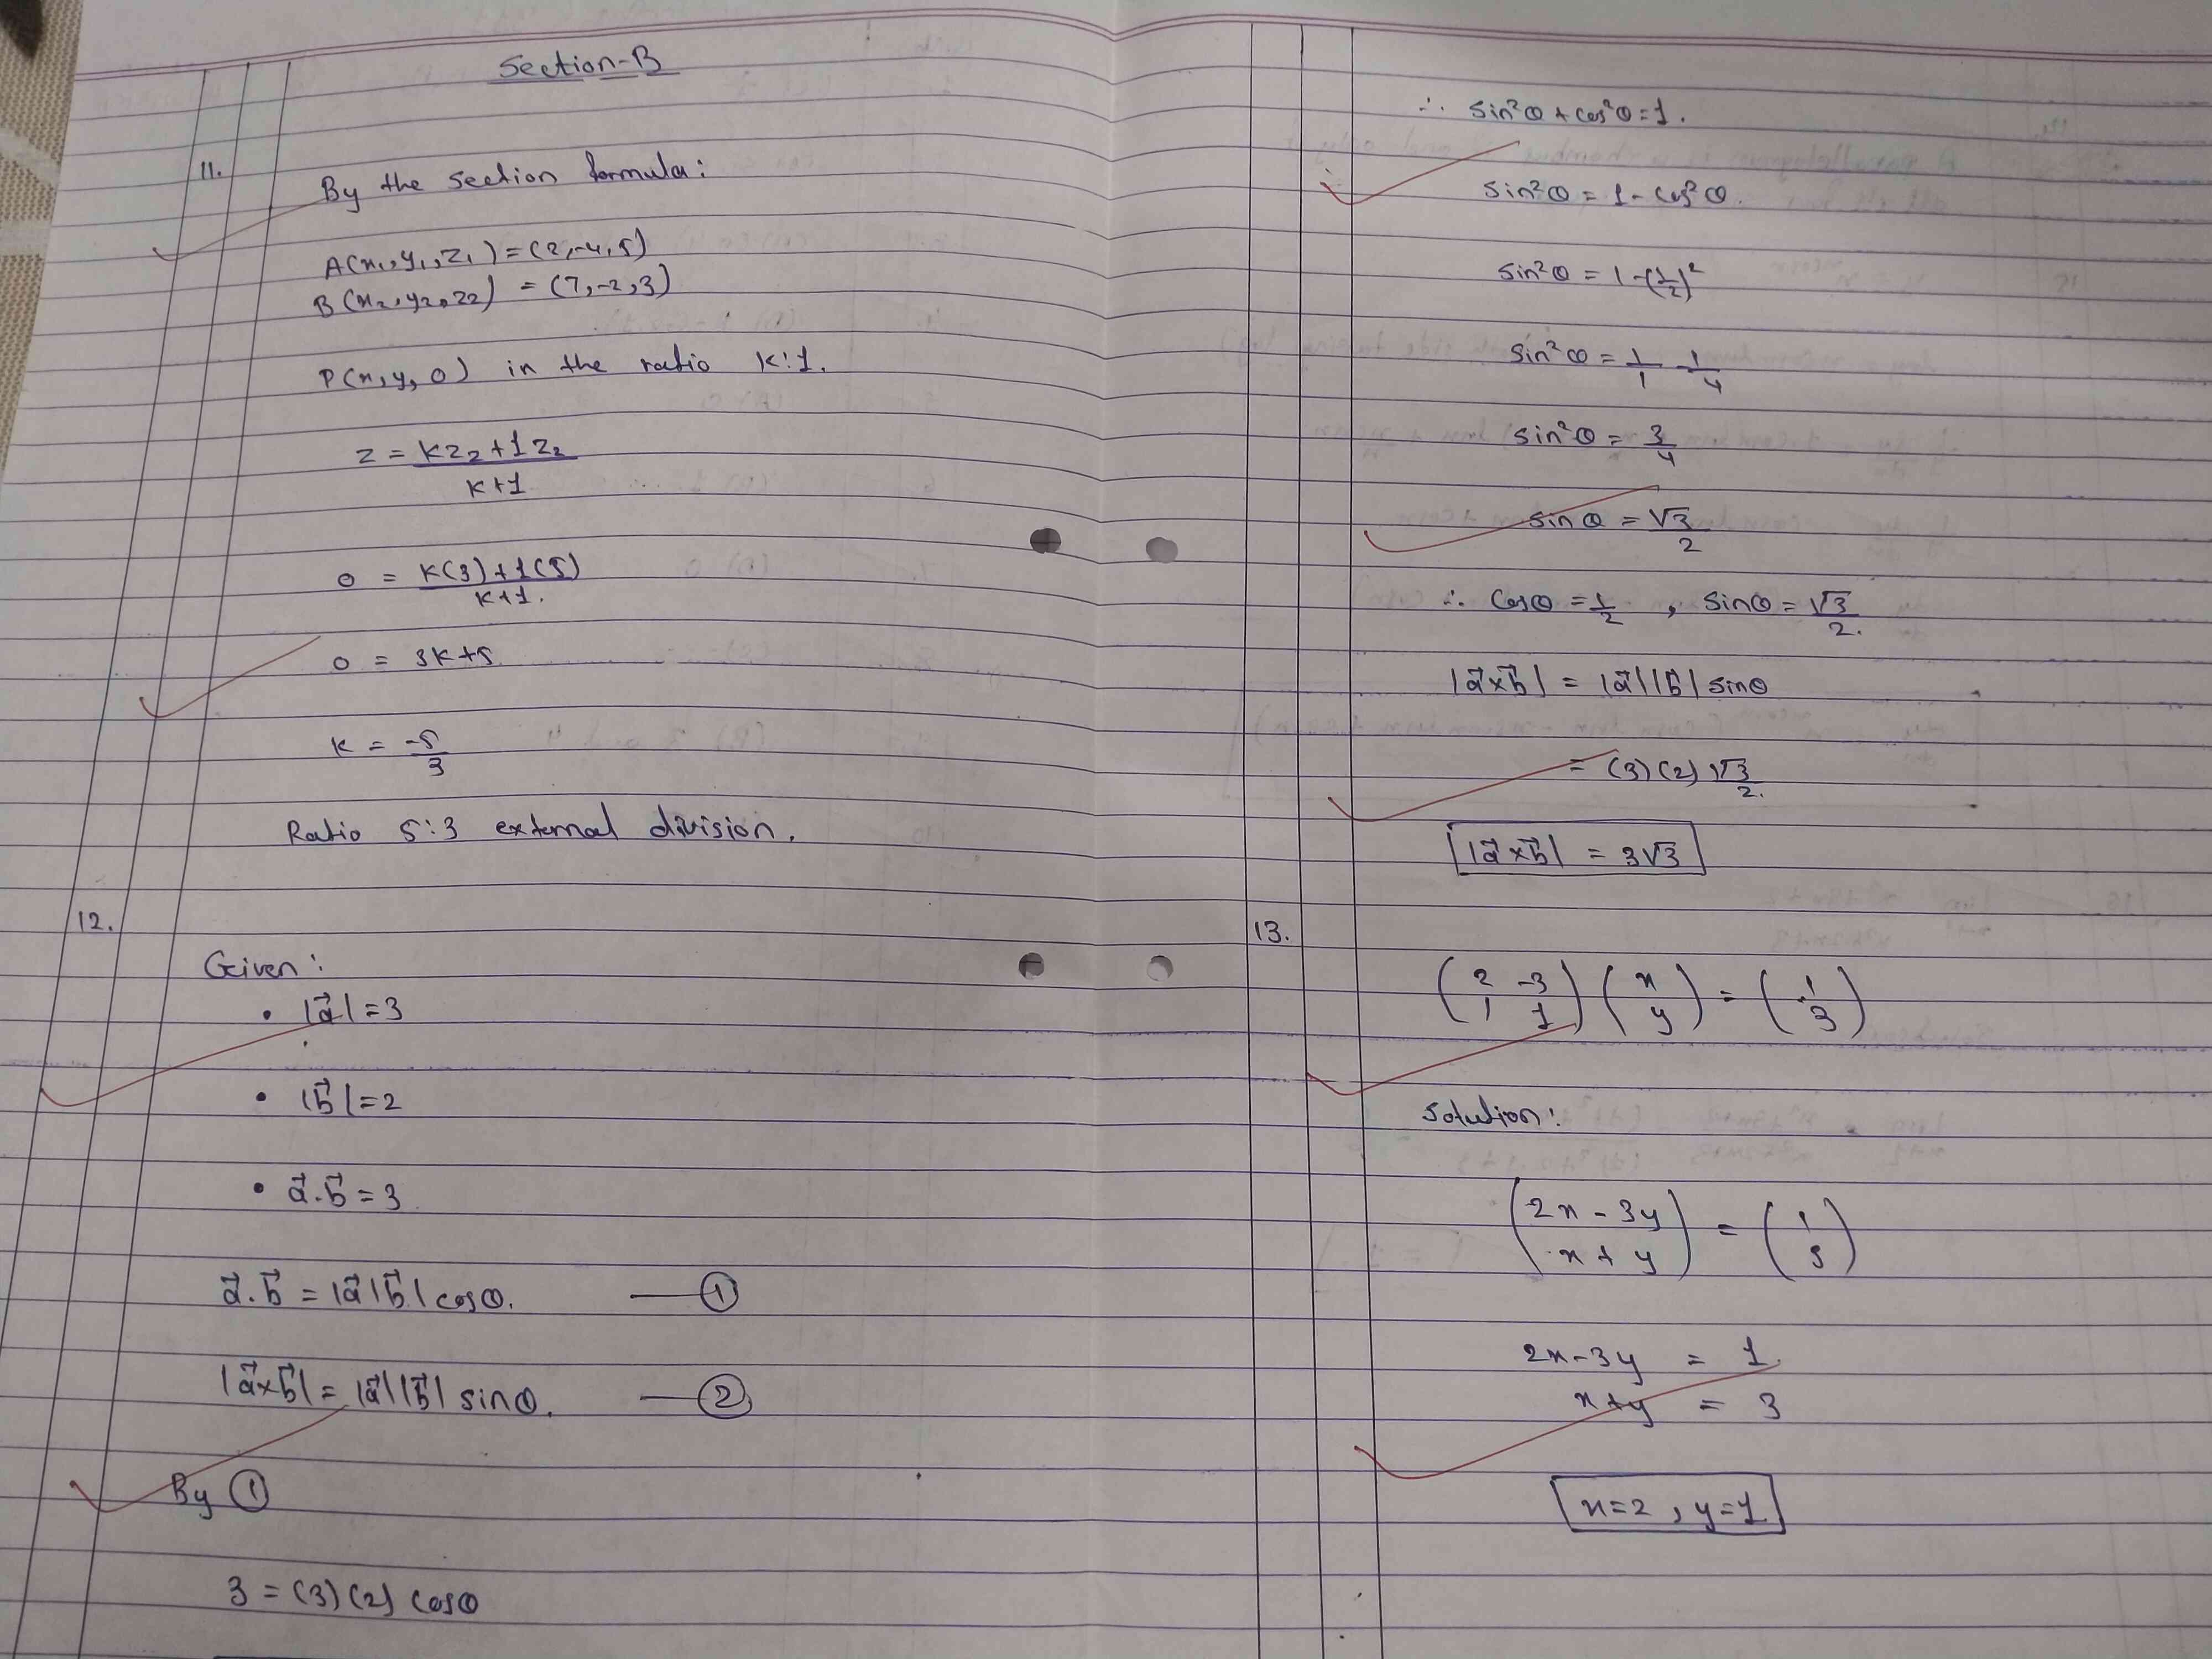 Section-B
11.
By the section formula:
A(x₁,y₁,z₁)=(2,-4,5)
B(x₂,y₂,z₂) = (7,-2,3)
P(x,y,0) in the ratio k:1.
z = kz₂+1z₂ / k+1
0 = k(3)+1(5) / k+1.
0 = 3k+5
k = -5/3
Ratio 5:3 external division.
12.
Given:
• |a⃗|=3
• |b⃗|=2
• a⃗.b⃗=3
a⃗.b⃗ = |a⃗|b⃗| cosθ. —①
|a⃗×b⃗| = |a⃗||b⃗| sinθ. —②
By ①
3 = (3)(2) cosθ
∴ sin²θ + cos²θ = 1.
sin²θ = 1 - cos²θ.
sin²θ = 1-(1/2)²
sin²θ = 1/1 - 1/4
sin²θ = 3/4
sinθ = √3/2
∴ cosθ = 1/2, sinθ = √3/2.
|a⃗×b⃗| = |a⃗||b⃗| sinθ
= (3)(2) √3/2.
|a⃗×b⃗| = 3√3
13.
(2 -3) (x) = (1)
(1 1) (y) (3)
Solution:
(2x - 3y) = (1)
(x + y) (3)
2x-3y = 1
x+y = 3
x=2, y=1